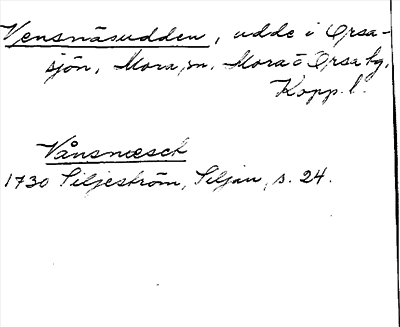 Vensnäsudden, udde i Orsa-
sjön, Mora sn, Mora o Orsa tg,
Kopp. l.
Vånsnæsch
1730 Siljeström, Siljan, s. 24.